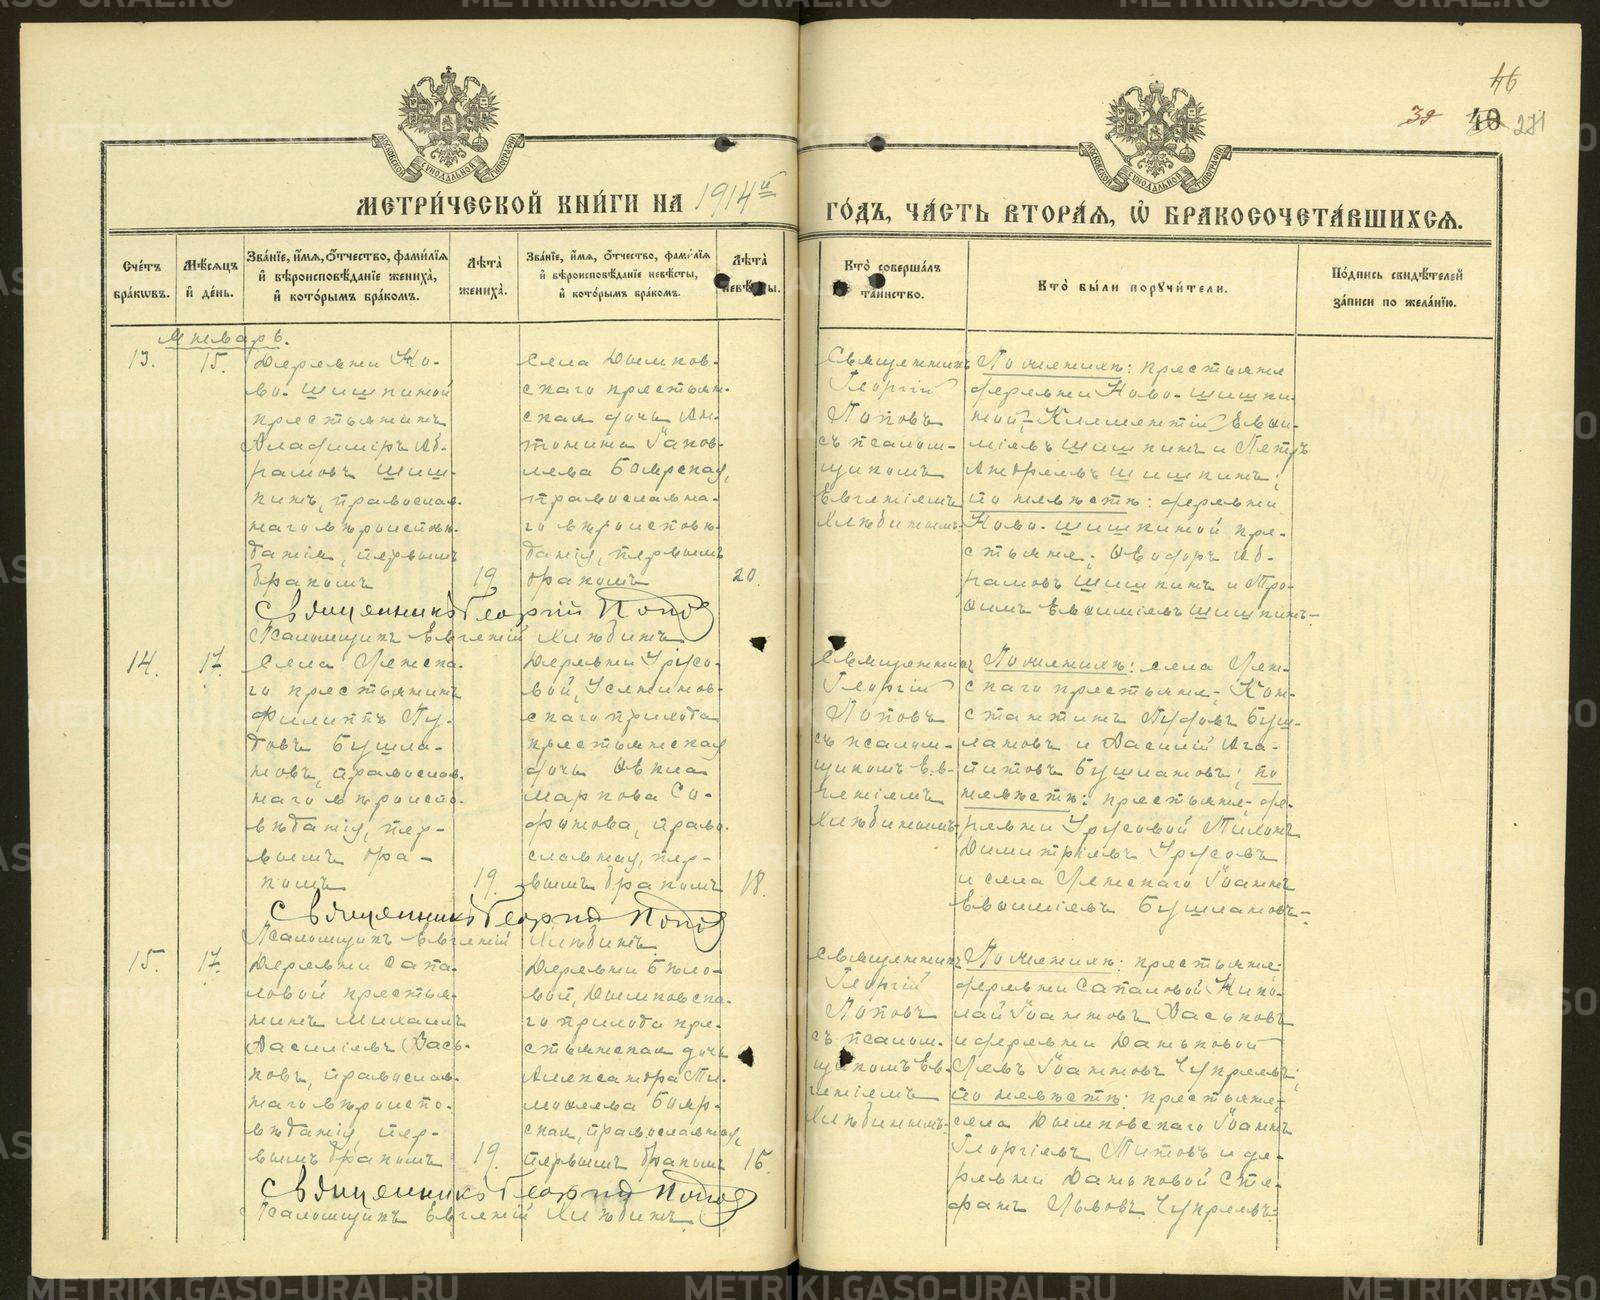 46
39 40 271
МОСКОВСКОЙ СѴНОДАЛЬНОЙ ТИПОГРАФІИ
МОСКОВСКОЙ СѴНОДАЛЬНОЙ ТИПОГРАФІИ
МЕТРИ́ЧЕСКОЙ КНИ́ГИ НА 1914й
ГО́ДЪ, ЧА́СТЬ ВТОРА́Я, Ѡ БРАКОСОЧЕТА́ВШИХСЯ.
Сче́тъ бра́кѡвъ.
Мѣ́сяцъ и де́нь.
Зва́нїе, и́мя, ѻ́тчество, фами́лїя и вѣроисповѣ́данїе жениха̀, и кото́рымъ бра́комъ.
Лѣ́та жениха̀.
Зва́нїе, и́мя, ѻ́тчество, фами́лїя и вѣроисповѣ́данїе невѣ́сты, и кото́рымъ бра́комъ.
Лѣ́та невѣ́сты.
Кто̀ соверша́лъ таинство.
Кто̀ бы́ли порꙋчи́тели.
По́дпись свидѣ́телей за́писи по жела́нїю.
Январь.
13.
15.
Деревни Но-
во-Шишкиной
крестьянинъ
Владиміръ Аб-
рамовъ Шиш-
кинъ, православ-
наго вѣроисповѣ-
данія, первымъ
бракомъ
19
села Дымков-
скаго крестьян-
ская дочь Ан-
тонина Іаков-
лева Боярская,
православна-
го вѣроисповѣ-
данія, первымъ
бракомъ
20.
Священникъ
Георгій
Поповъ
съ псалом-
щикомъ
Евгеніемъ
Хлѣбинымъ
По женихѣ: крестьяне
деревни Ново-Шишки-
ной, Климентій Евѳи-
міевъ Шишкинъ и Петръ
Андреевъ Шишкинъ;
по невѣстѣ: деревни
Ново-Шишкиной кре-
стьяне: Ѳеодоръ Аб-
рамовъ Шишкинъ и Тро-
фимъ Евѳиміевъ Шишкинъ.
Священникъ Георгій Поповъ
Псаломщикъ Евгеній Хлѣбинъ.
14.
17.
Села
го крестьянинъ
Филиппъ Пу-
довъ Бушла-
новъ, православ-
наго вѣроиспо-
вѣданія, пер-
вымъ бра-
комъ
19.
Деревни Урусо-
вой, Усениновскаго прихода
крестьянская
дочь Ѳекла
Маркова Со-
фонова, право-
славная, пер-
вымъ бракомъ
18.
Священникъ
Георгій
Поповъ
съ псалом-
щикомъ Ев-
геніемъ
Хлѣбинымъ
По женихѣ: села
скаго крестьяне, Кон-
стантинъ Пудовъ Буш-
лановъ и Василій Ага-
питовъ Бушлановъ; по
невѣстѣ: крестьяне, де-
ревни Урусовой Пименъ
Димитріевъ Урусовъ
и села Іоаннъ
Евѳиміевъ Бушлановъ.
Священникъ Георгій Поповъ
Псаломщикъ Евгеній Хлѣбинъ.
15.
17.
Деревни Сапа-
ловой крестья-
нинъ Михаилъ
Василіевъ Вась-
ковъ, православ-
наго вѣроиспо-
вѣданія, пер-
вымъ бракомъ
19.
Деревни Бѣло-
вой, Дымковска-
го прихода кре-
стьянская дочь
Александра Ти-
моѳеева Бояр-
ская, православная,
первымъ бракомъ
16.
Священникъ
Георгій
Поповъ
съ псалом-
щикомъ Ев-
геніемъ
Хлѣбинымъ.
По женихѣ: крестьяне
деревни Сапаловой Нико-
лай Іоанновъ Васьковъ
и деревни Даньковой
Левъ Іоанновъ Чупреевъ;
по невѣстѣ: крестьяне,
села Дымковскаго Іоаннъ
Георгіевъ Титовъ и де-
ревни Даньковой Сте-
фанъ Львовъ Чупреевъ.
Священникъ Георгій Поповъ
Псаломщикъ Евгеній Хлѣбинъ.
METRIKI.GASO-URAL.RU